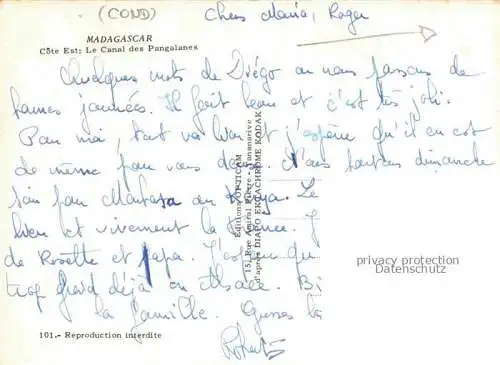 (COND) Chers Maria, Roger
MADAGASCAR
Côte Est: Le Canal des Pangalanes
Quelques mots de Diégo où nous passons de
bonnes journées. Il fait beau et c'est très joli.
Pour moi, tout va bien et j'espère qu'il en est
de même pour vous deux. Nous partons dimanche
soir pour
bien et vivement la
de Rosette et papa. J'espère qu
trop froid déjà en Alsace. Bi
la famille. Grosses b
Robert
Editions OPTICAM
151, Rue Amiral Pierre - Tananarive
d'après DIAPO EKTACHROME KODAK
privacy protection
Datenschutz
101.- Reproduction interdite